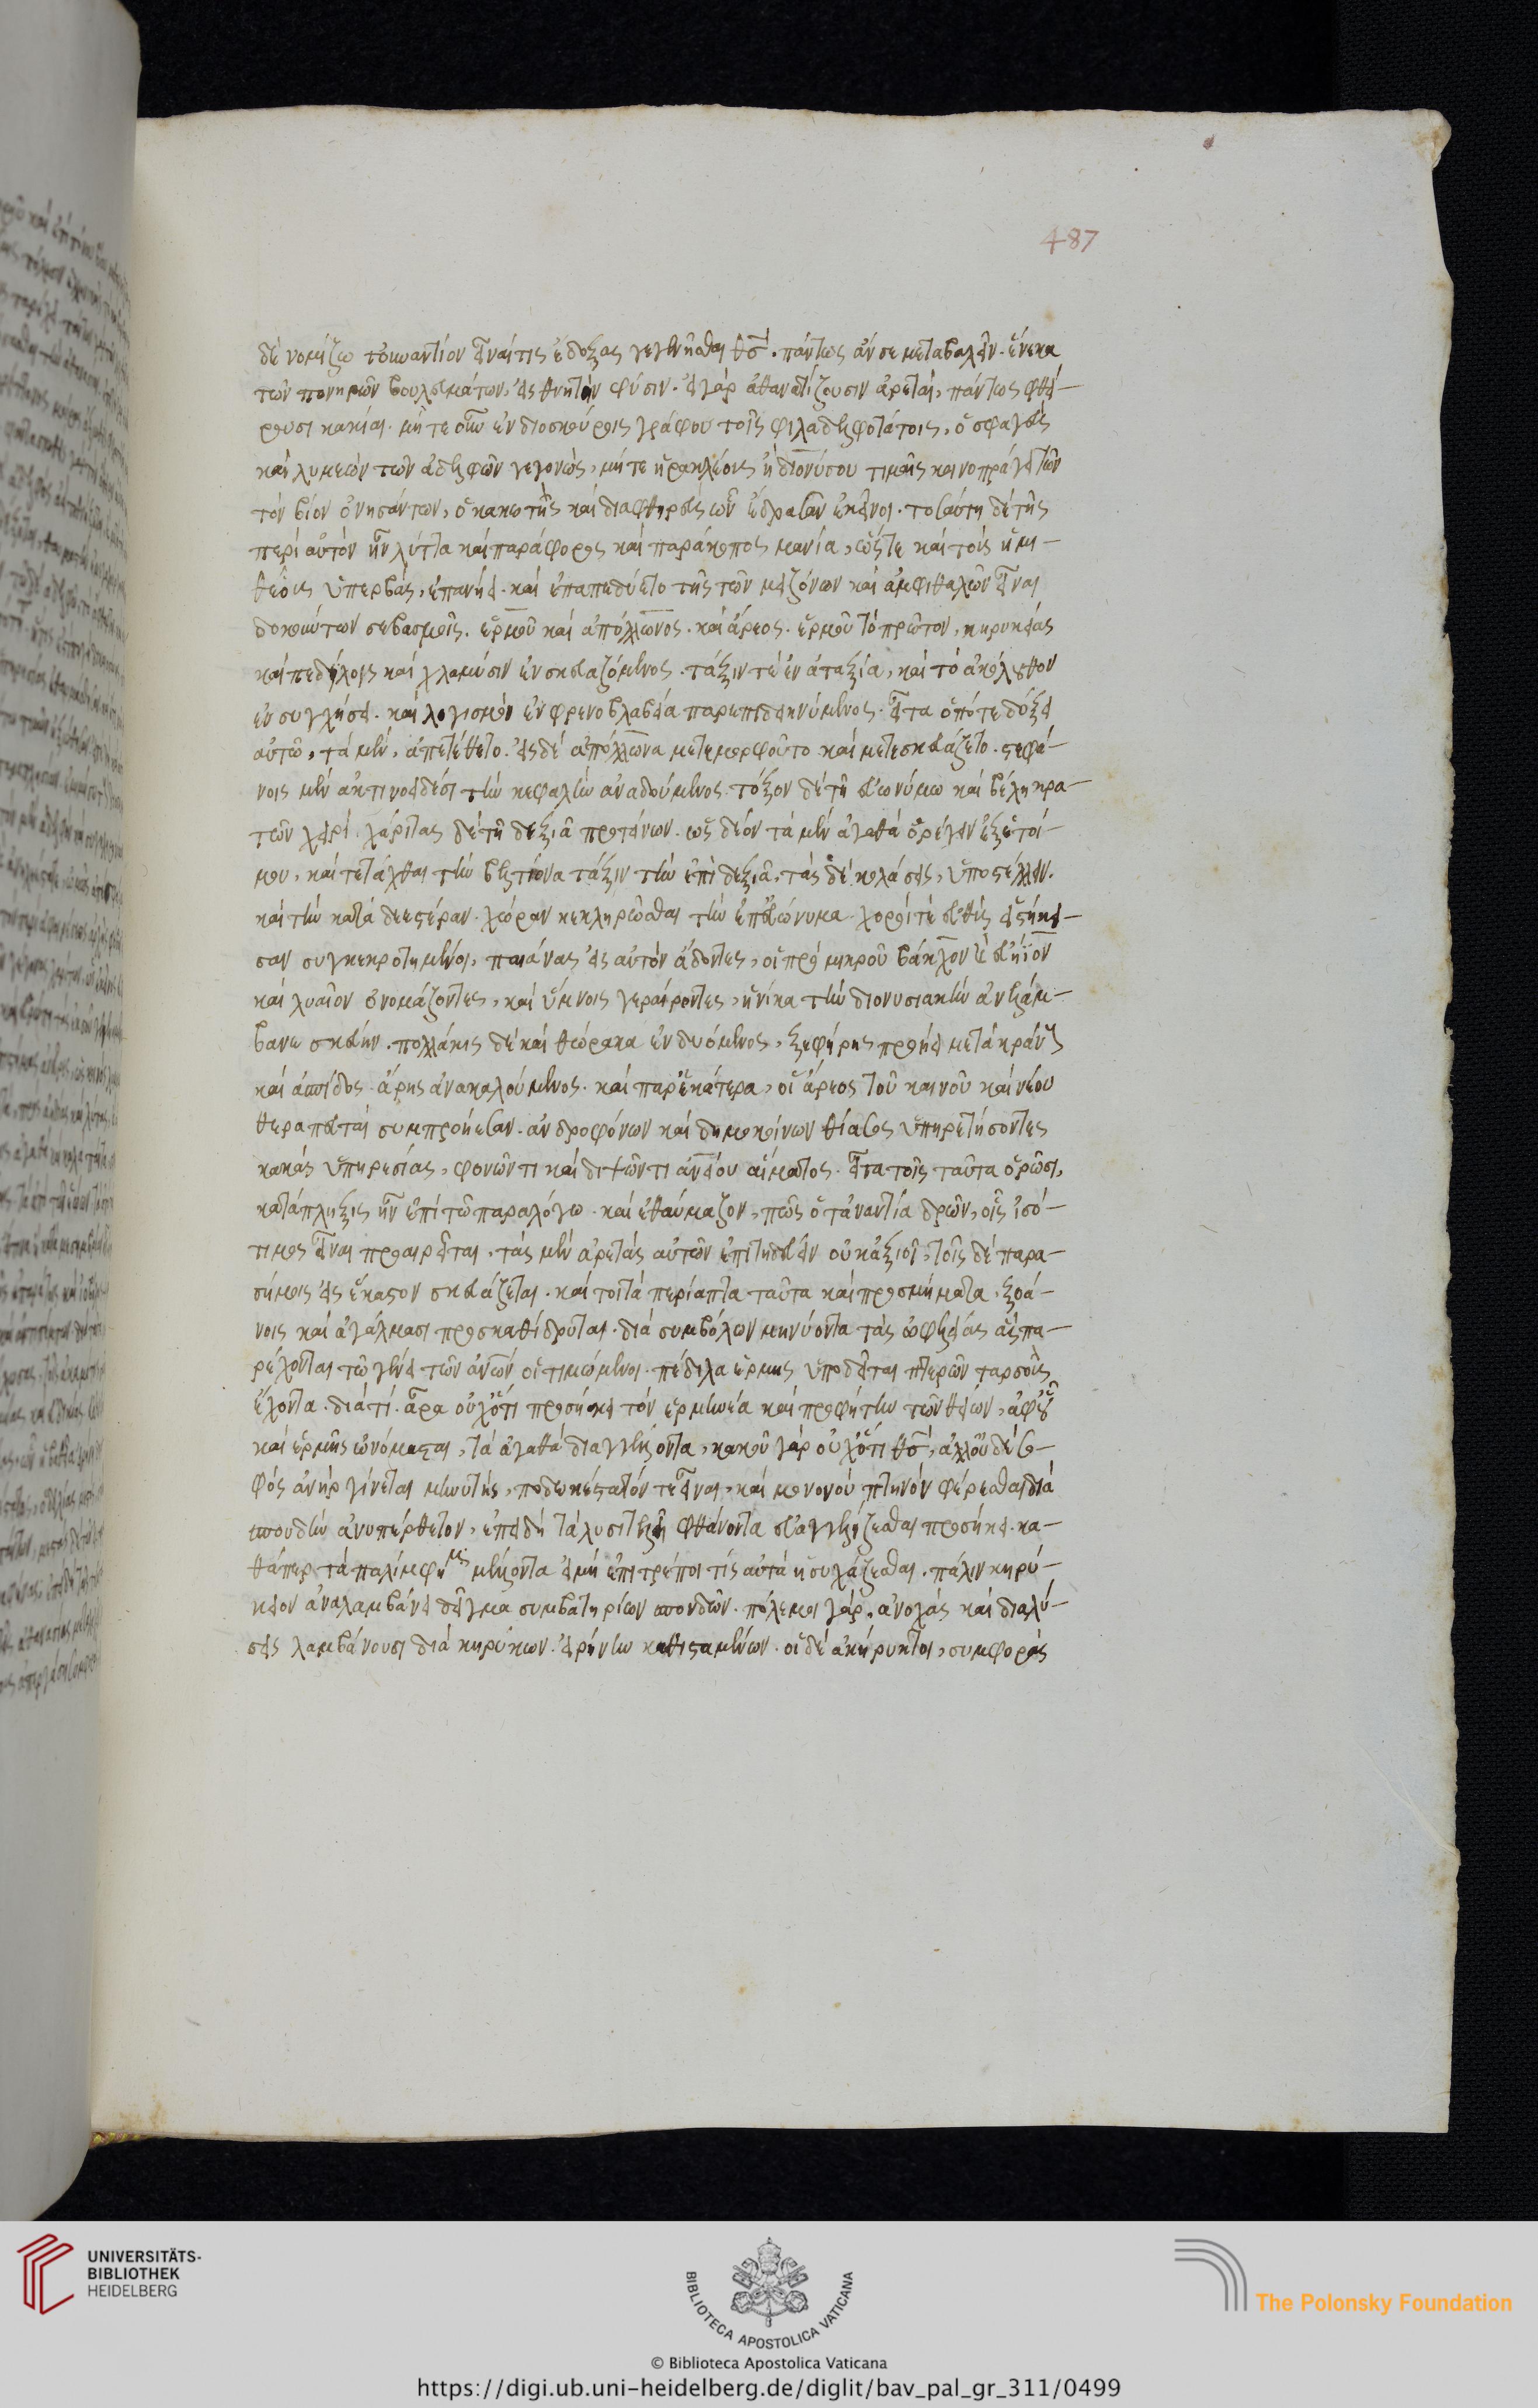 487
δὲ νομίζω τοὐναντίον εἶναί τις ἔδοξας γεγενῆσθαι θσ. πάντως ἄν σε μεταβαλεῖν. ἕνεκα
τῶν πονηρῶν βουλευμάτων, εἰς θνητὴν φύσιν. εἰ γὰρ ἀθανατίζουσιν ἀρεταί, πάντως φθεί-
ρουσι κακίαι. μήτε οὖν ἐν διοσκούροις γράφου τοῖς φιλαδελφοτάτοις, ὁ σφαγεὺς
καὶ λυμεὼν τῶν ἀδελφῶν γεγονώς, μήτε ἡρακλέους ἢ διονύσου τιμῆς κοινοπράγει τῶν
τὸν βίον ὀνησάντων, ὁ κακωτὴς καὶ διαφθορεὺς ὧν ἔδρασαν ἐκεῖνοι. τοσαύτη δέ τις
περὶ αὐτὸν ἦν λύττα καὶ παράφορος καὶ παράκοπος μανία, ὥστε καὶ τοὺς ἡμι-
θέους ὑπερβάς, ἐπανῄει. καὶ ἐπαπεδύετο τοῖς τῶν μειζόνων καὶ ἀμφιθαλῶν εἶναι
δοκούντων σεβασμοῖς. ἑρμοῦ καὶ ἀπόλλωνος. καὶ ἄρεος. ἑρμοῦ τὸ πρῶτον, κηρυκείοις
καὶ πεδίλοις καὶ χλαμύσιν ἐνσκευαζόμενος. τάξιν τὲ ἐν ἀταξία, καὶ τὸ ἀκόλουθον
ἐν συγχύσει. καὶ λογισμὸν ἐν φρενοβλαβεία παρεπιδεικνύμενος. εἶτα ὁπότε δόξει
αὐτῶ, τὰ μὲν, ἀπετίθετο. εἰς δὲ ἀπόλλωνα μετεμορφοῦτο καὶ μετεσκευάζετο. στεφά-
νοις μὲν ἀκτινοειδέσι τὴν κεφαλὴν ἀναδούμενος. τόξον δὲ τῆ εὐωνύμω καὶ βέλη κρα-
τῶν χειρί. χάριτας δὲ τῆ δεξιᾶ προτείνων. ὡς δέον τὰ μὲν ἀγαθὰ ὀρέγειν ἐξ ἑτοί-
μου, καὶ τετάχθαι τὴν βελτίονα τάξιν τὴν ἐπὶ δεξιᾶ, τὰς δὲ κολάσεις, ὑποστέλλειν.
καὶ τὴν καταδεεστέραν. χώραν κεκληρῶσθαι τὴν ἐπ εὐώνυμα. χοροί τε εὐθὺς εἱστήκει-
σαν συγκεκροτημένοι, παιάνας εἰς αὐτὸν ἄδοντες, οἱ πρὸ μικροῦ βάκχον καὶ εὐήϊον
καὶ λυαῖον ὀνομάζοντες, καὶ ὕμνοις γεραίροντες, ἡνίκα τὴν διονυσιακὴν ἀνελάμ-
βανε σκευήν. πολλάκις δὲ καὶ θώρακα ἐνδυόμενος, ξιφήρης προῄει μετὰ κράνους
καὶ ἀσπίδος. ἄρης ἀνακαλούμενος. καὶ παρ ἑκάτερα, οἱ ἄρεος τοῦ καινοῦ καὶ νέου
θεραπευταὶ συμπροῄεσαν. ἀνδροφόνων καὶ δημοκοίνων θίασος ὑπηρετήσοντες
κακὰς ὑπηρεσίας, φονῶντι καὶ διψῶντι ἀνείου αἵματος. εἶτα τοῖς ταῦτα ὁρῶσι,
κατάπληξις ἦν ἐπὶ τῶ παραλόγω. καὶ ἐθαύμαζον, πῶς ὁ τἀναντία δρῶν, οἷς ἰσό-
τιμος εἶναι προαιρεῖται, τὰς μὲν ἀρετὰς αὐτῶν ἐπιτηδεύειν οὐκ ἀξιοῖ, τοῖς δὲ παρα-
σήμοις εἰς ἕκαστον σκευάζεται. καί τοι τὰ περίαπτα ταῦτα καὶ προσμήματα, ξοά-
νοις καὶ ἀγάλμασι προσκαθίδρυται. διὰ συμβόλων μηνύοντα τὰς ὠφελείας ἃς πα-
ρέχονται τῶ γένει τῶν ἀνων οἱ τιμώμενοι. πέδιλα ἑρμῆς ὑποδεῖται πτερῶν ταρσοὺς
ἔχοντα. διατί. ἆρα οὐχ ὅτι προσήκει τὸν ἑρμηνέα καὶ προφήτην τῶν θείων, ἀφ οὗ
καὶ ἑρμῆς ὠνόμασται, τὰ ἀγαθὰ διαγγέλλοντα, κακοῦ γὰρ οὐχ ὅτι θσ, ἀλλ οὐδὲ σο-
φὸς ἀνὴρ γίνεται μηνυτής, ποδωκέστατόν τε εἶναι, καὶ μονονοὺ πτηνὸν φέρεσθαι διὰ
σπουδὴν ἀνυπέρθετον, ἐπειδὴ τὰ λυσιτελῆ φθάνοντα εὐαγγελίζεσθαι προσήκει. κα-
θάπερ τὰ παλίμφημα μέλλοντα εἰ μὴ ἐπιτρέποι τις αὐτὰ ἡσυχάζεσθαι. πάλιν κηρύ-
κειον ἀναλαμβάνει δεῖγμα συμβατηρίων σπονδῶν. πόλεμοι γάρ, ἀνοχὰς καὶ διαλύ-
σεις λαμβάνουσι διὰ κηρύκων. εἰρήνην καθισταμένων. οἱ δὲ ἀκήρυκτοι, συμφορὰς
UNIVERSITÄTS-
BIBLIOTHEK
HEIDELBERG
BIBLIOTECA APOSTOLICA VATICANA
© Biblioteca Apostolica Vaticana
The Polonsky Foundation
https://digi.ub.uni-heidelberg.de/diglit/bav_pal_gr_311/0499